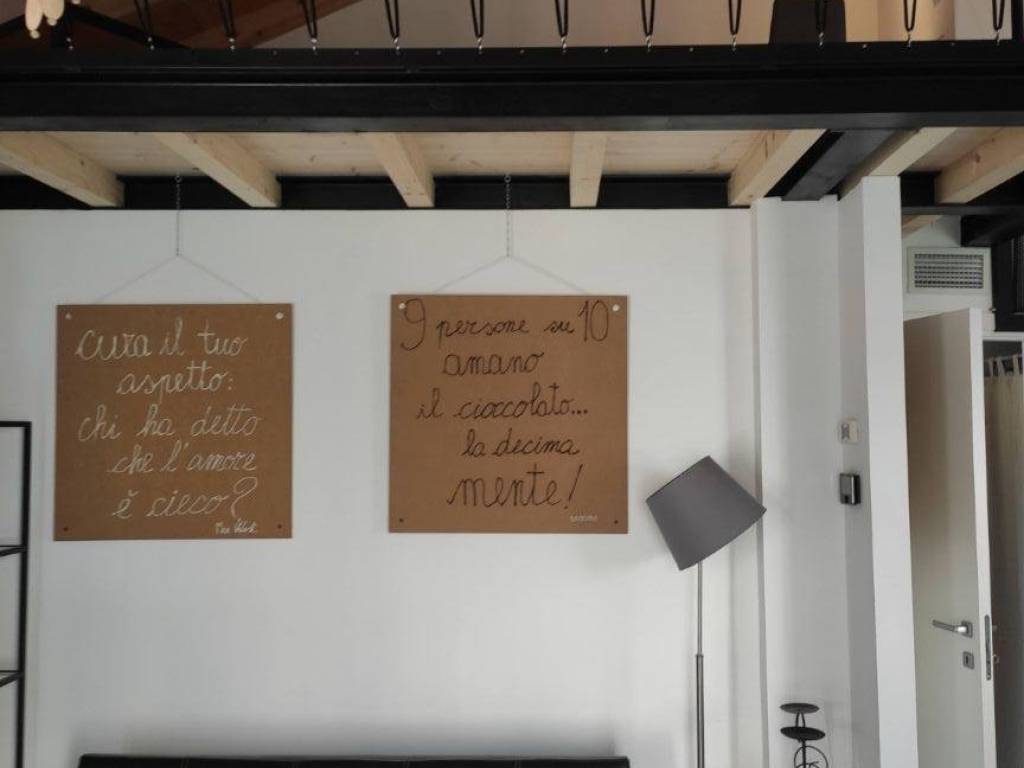 cura il tuo
aspetto:
chi ha detto
che l'amore
è cieco?
9 persone su 10
amano
il cioccolato...
la decima
mente!